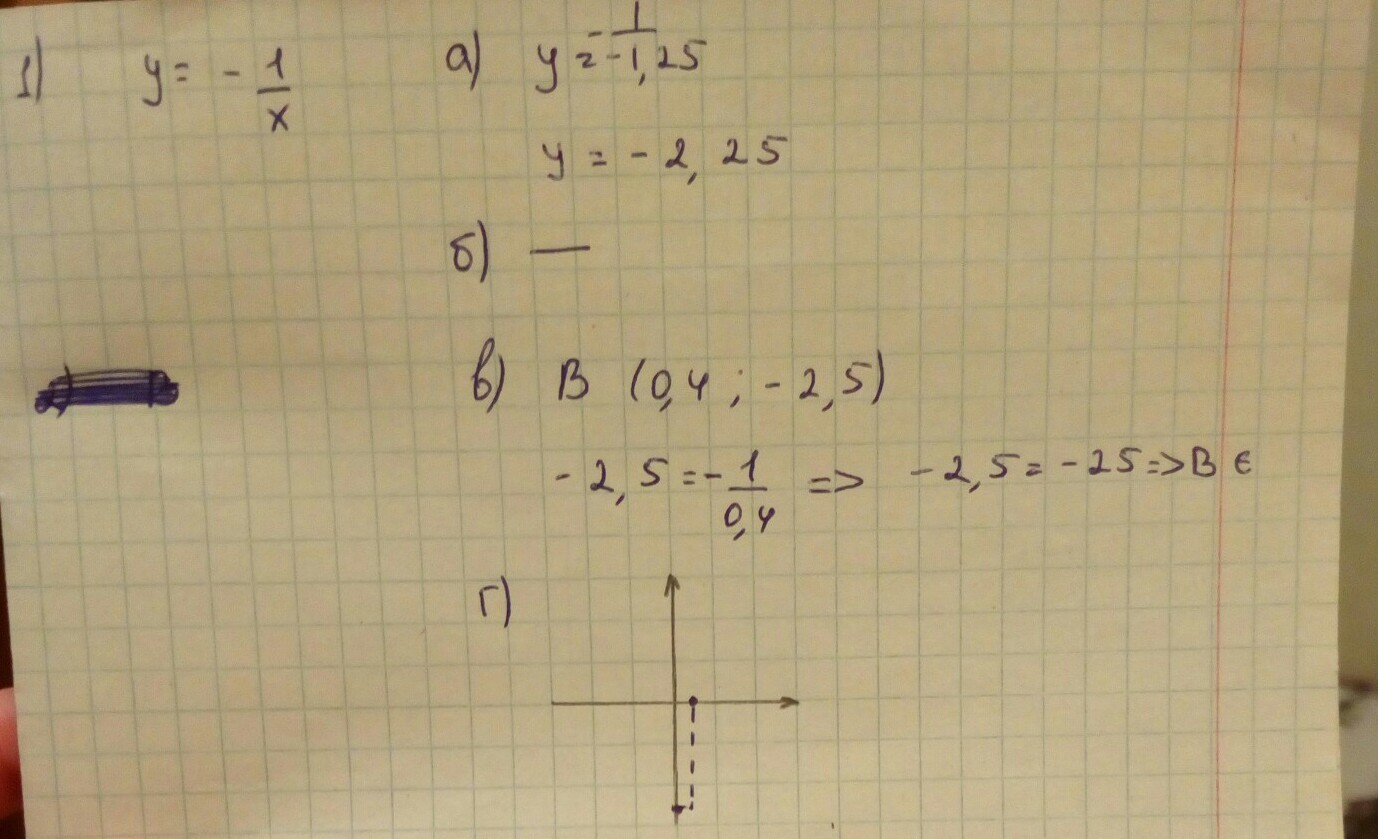 1) y = - 1/x
а) y = - 1/-1,25
y = - 2,25
б) —
в) B (0,4 ; - 2,5)
- 2,5 = - 1/0,4 => - 2,5 = - 25 => B ∈
г)